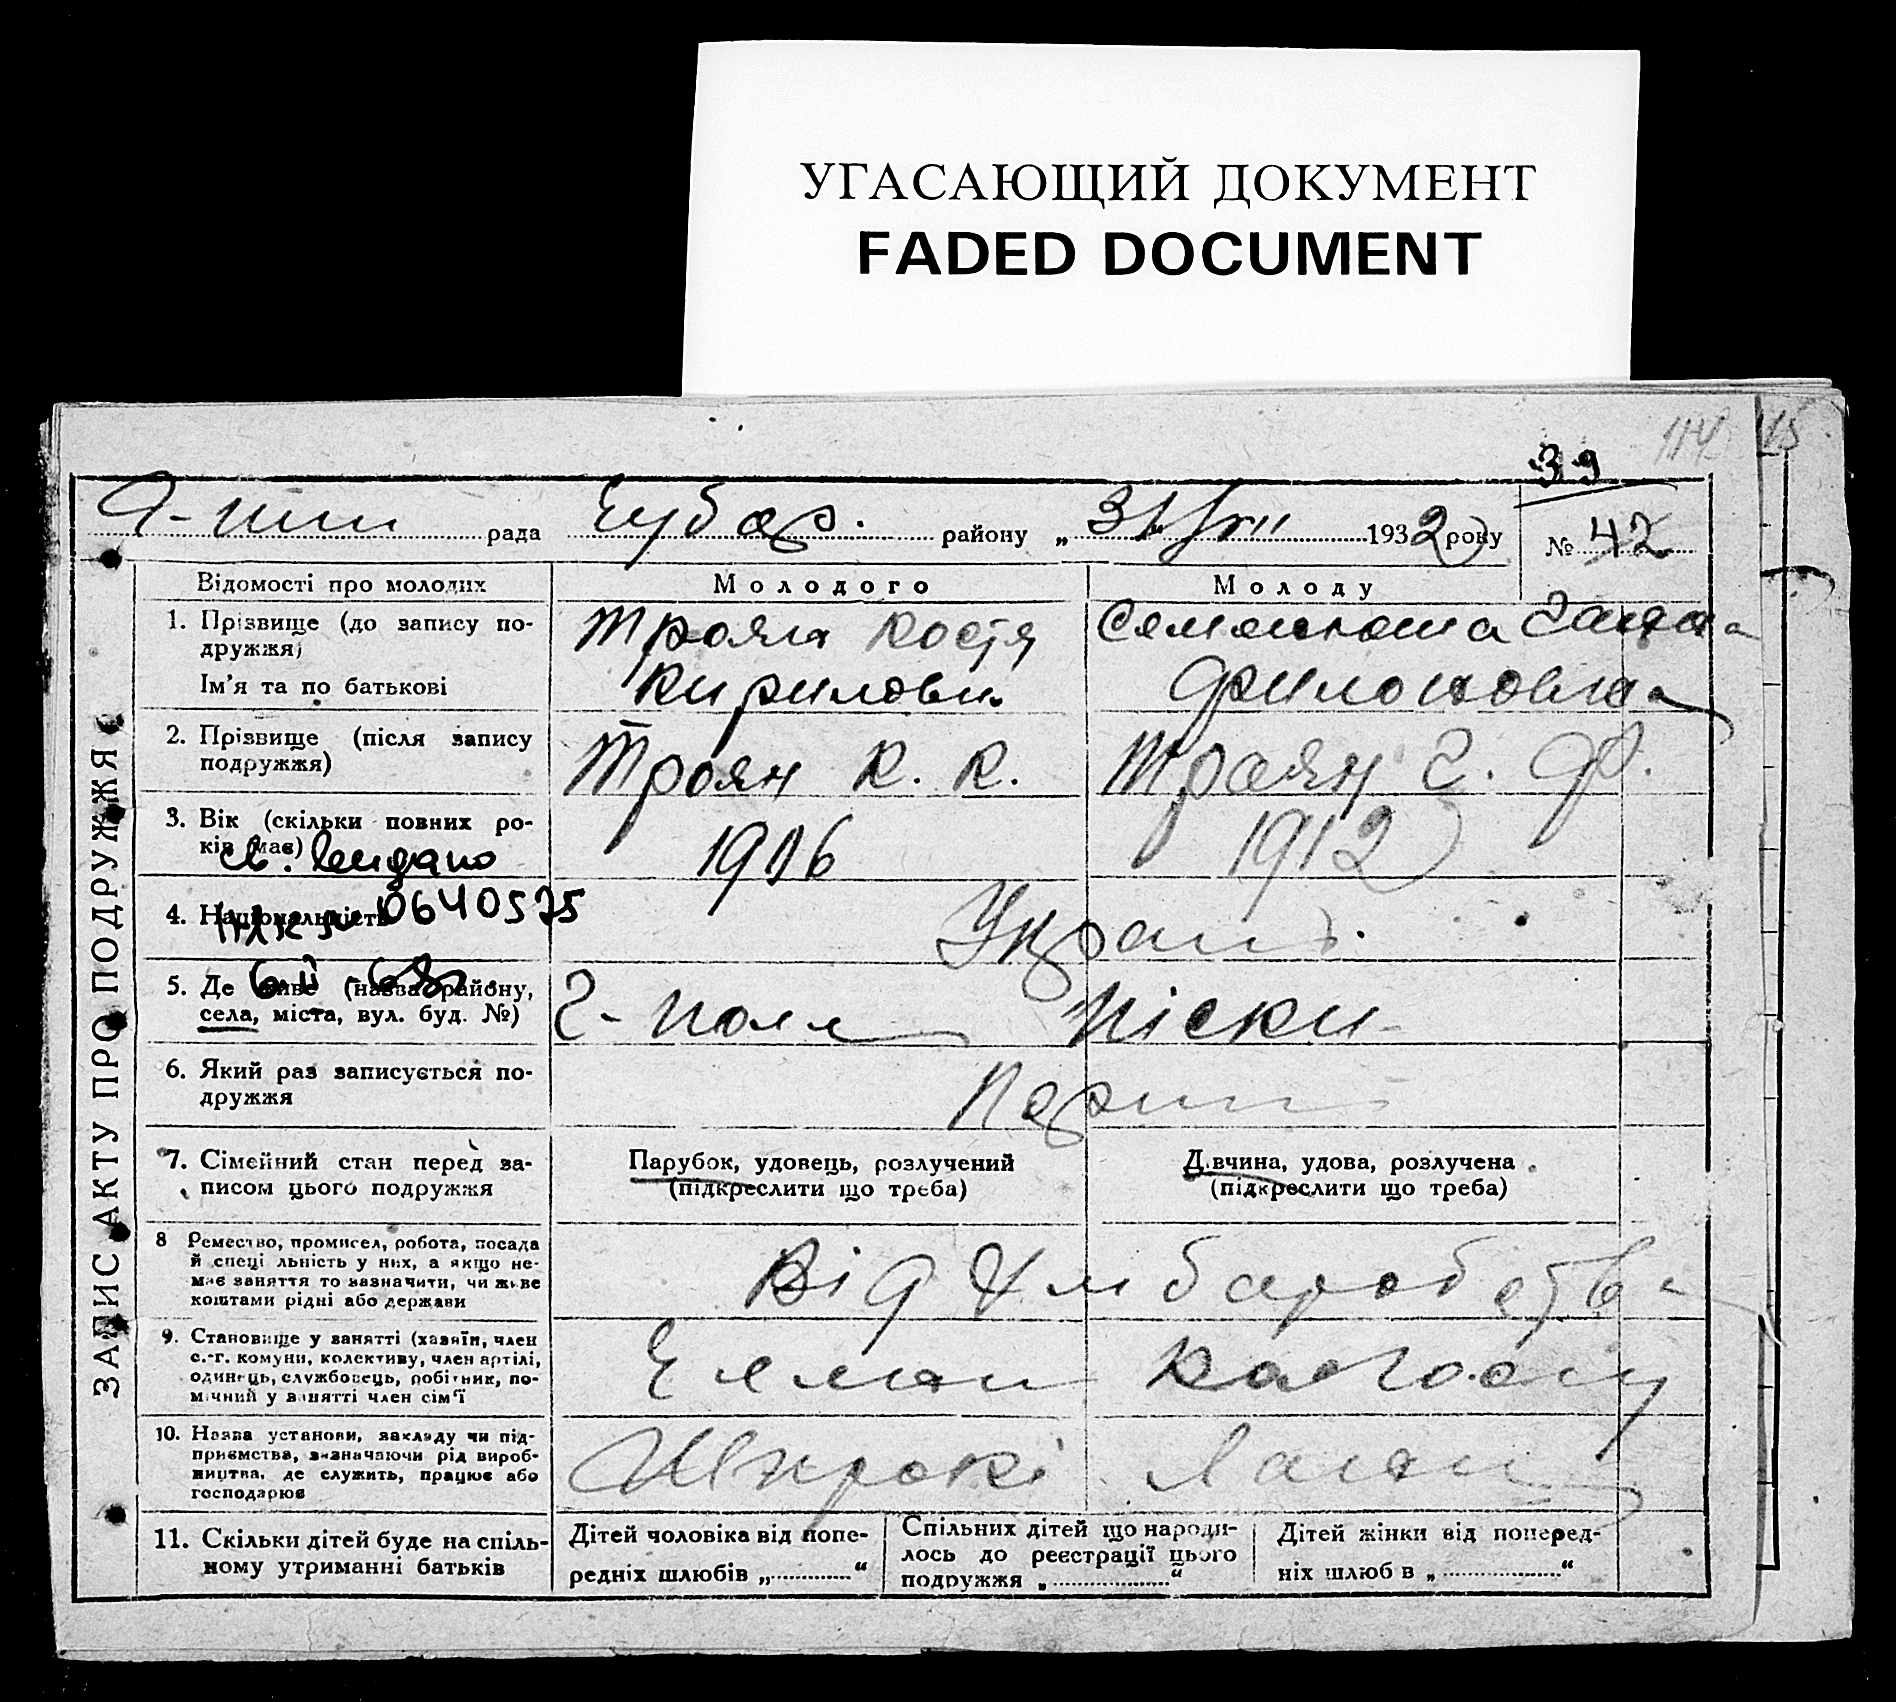 УГАСАЮЩИЙ ДОКУМЕНТ
FADED DOCUMENT
114 115
39
рада Чубар. району „31“ VII 1932 року № 42
ЗАПИС АКТУ ПРО ПОДРУЖЖЯ
Відомості про молодих
Молодого
Молоду
1. Прізвище (до запису по-
дружжя)
Ім'я та по батькові
Троян Костя
Кирилови
Филоновна
2. Прізвище (після запису
подружжя)
Троян К. К.
Троян Г. Ф.
3. Вік (скільки повних ро-
ків має)
1906
1912
св. видано
4. Національність
0640575
Украін.
5. Де живе (назва району,
села, міста, вул. буд. №)
Г-поле
Піски
6. Який раз записується по-
дружжя
Перший
7. Сімейний стан перед за-
писом цього подружжя
Парубок, удовець, розлучений
(підкреслити що треба)
Дівчина, удова, розлучена
(підкреслити що треба)
8 Ремество, промисел, робота, посада
й спеціальність у них, а якщо не-
має заняття то зазначити, чи живе
коштами рідні або держави
Від
9. Становище у занятті (хазяїн, член
с.-г. комуни, колективу, член артілі,
одинець, службовець, робітник, по-
мічний у занятті член сім'ї
Член Колгоспу
10. Назва установи, закладу чи під-
приємства, зазначаючи рід вироб-
ництва, де служить, працює або
господарює
Широкі Лани
11. Скільки дітей буде на спіль-
ному утриманні батьків
Дітей чоловіка від попе-
редніх шлюбів „..............“
Спільних дітей що народи-
лось до реєстрації цього
подружжя „..............“
Дітей жінки від поперед-
ніх шлюбів „..............“